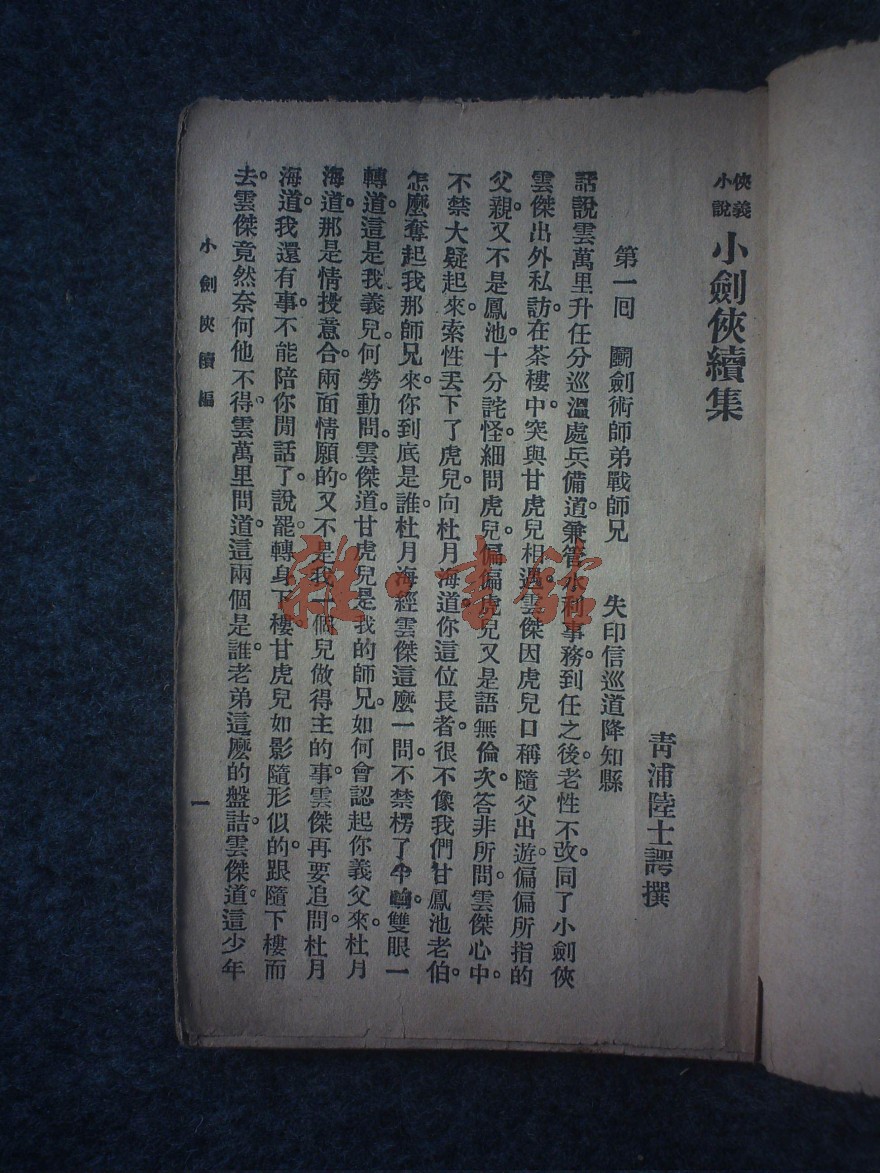 俠義小說 小劍俠續集
青浦陸士諤撰
第一回 鬭劍術師弟戰師兄 失印信巡道降知縣
話說雲萬里升任分巡溫處兵備道。兼管水利事務。到任之後。老性不改。同了小劍俠
雲傑出外私訪。在茶樓中。突與甘虎兒相遇。雲傑因虎兒口稱隨父出遊。偏偏所指的
父親。又不是鳳池。十分詫怪。細問虎兒。偏偏虎兒又是語無倫次。答非所問。雲傑心中。
不禁大疑起來。索性丟下了虎兒。向杜月海道。你這位長者。很不像我們甘鳳池老伯。
怎麼奪起我那師兄來。你到底是誰。杜月海經雲傑這麼一問。不禁楞了半晌。雙眼一
轉道。這是我義兒。何勞動問。雲傑道。甘虎兒是我的師兄。如何會認起你義父來。杜月
海道。那是情投意合。兩面情願的。又不是我一個兒做得主的事。雲傑再要追問。杜月
海道。我還有事。不能陪你閒話了。說罷。轉身下樓。甘虎兒如影隨形似的。跟隨下樓而
去。雲傑竟然奈何他不得。雲萬里問道。這兩個是誰。老弟這麼的盤詰。雲傑道。這少年
小劍俠續編
一
雜·書館